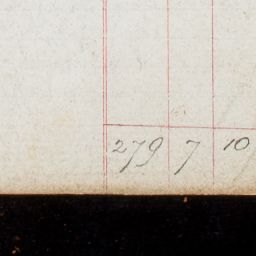 279 7 10